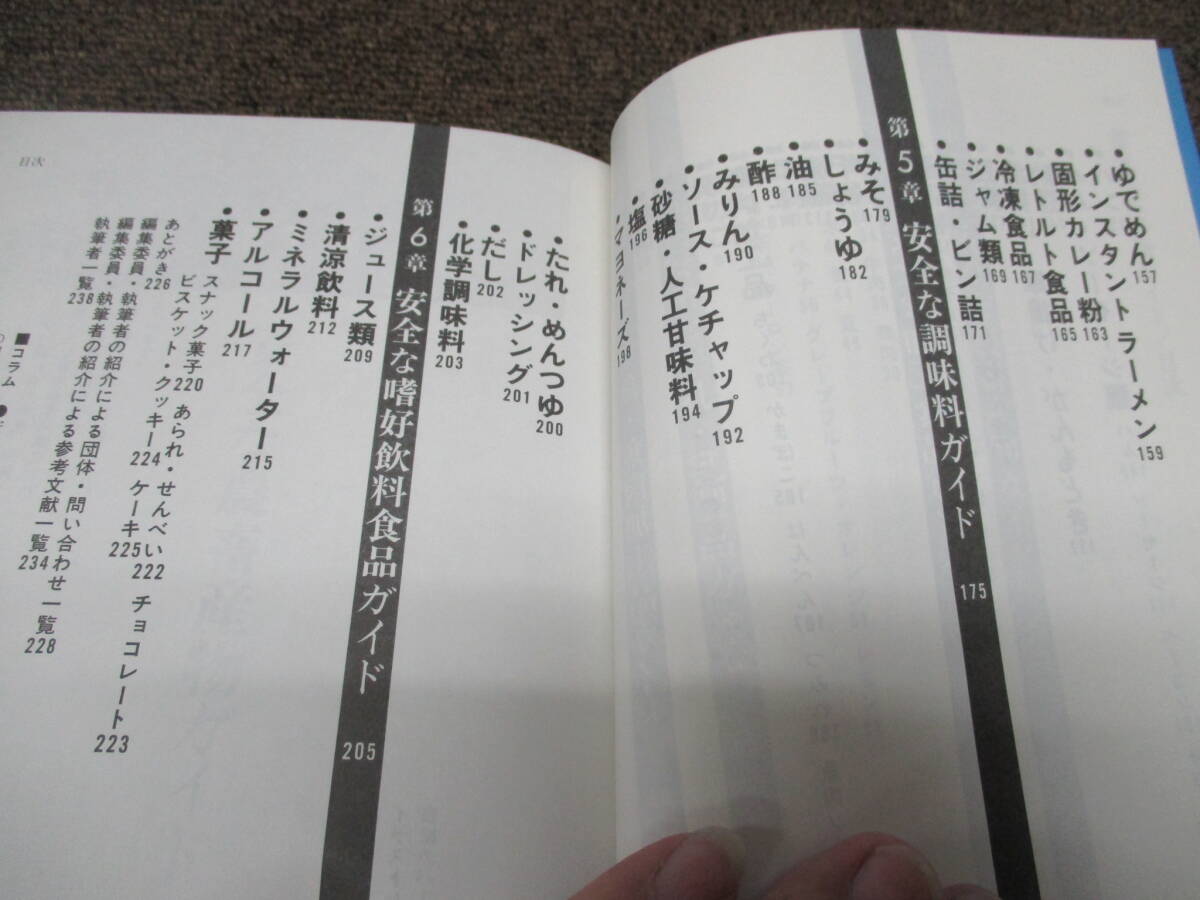 ・ゆでめん 157
・インスタントラーメン 159
・固形カレー粉 163
・レトルト食品 165
・冷凍食品 167
・ジャム類 169
・缶詰・ビン詰 171
第5章 安全な調味料ガイド 175
・みそ 179
・しょうゆ 182
・油 185
・酢 188
・みりん 190
・ソース・ケチャップ 192
・砂糖・人工甘味料 194
・塩 196
・マヨネーズ 198
・たれ・めんつゆ 200
・ドレッシング 201
・だし 202
・化学調味料 203
第6章 安全な嗜好飲料食品ガイド 205
・ジュース類 209
・清涼飲料 212
・ミネラルウォーター 215
・アルコール 217
・菓子
スナック菓子 220 あられ・せんべい 222 チョコレート 223
ビスケット・クッキー 224 ケーキ 225
あとがき 226
編集委員・執筆者の紹介による団体・問い合わせ一覧 228
編集委員・執筆者の紹介による参考文献一覧 234
執筆者一覧 238
■コラム
目次